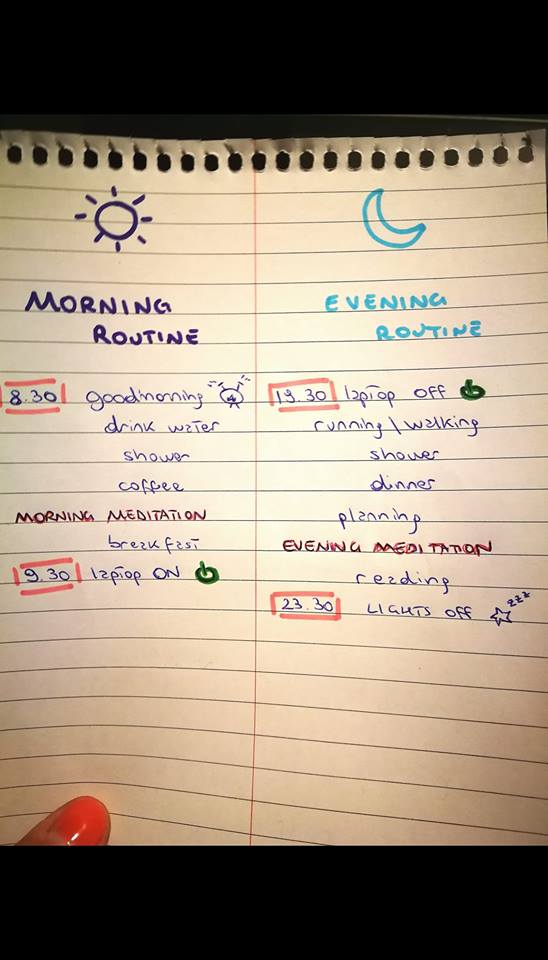 MORNING
ROUTINE
8.30 goodmorning
drink water
shower
coffee
MORNING MEDITATION
breakfast
9.30 laptop ON
EVENING
ROUTINE
19.30 laptop OFF
running\walking
shower
dinner
planning
EVENING MEDITATION
reading
23.30 LIGHTS OFF zzz